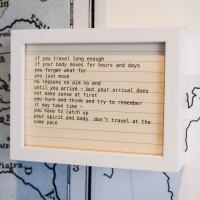 if you travel long enough
if your body moves for hours and days
you forget what for
you just move
no reasons no aim no end
until you arrive – but your arrival does
not make sense at first
you turn and think and try to remember
it may take time –
you have to catch up
your spirit and body don't travel at the
same pace